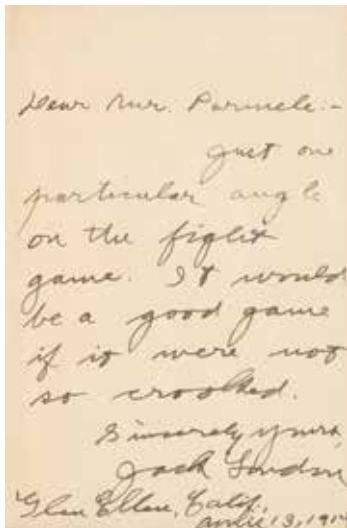 Dear Mr. Parmele:-
Just one
particular angle
on the fight
game. It would
be a good game
if it were not
so crooked.
Sincerely yours,
Jack London
Glen Ellen, Calif.,
April 13,